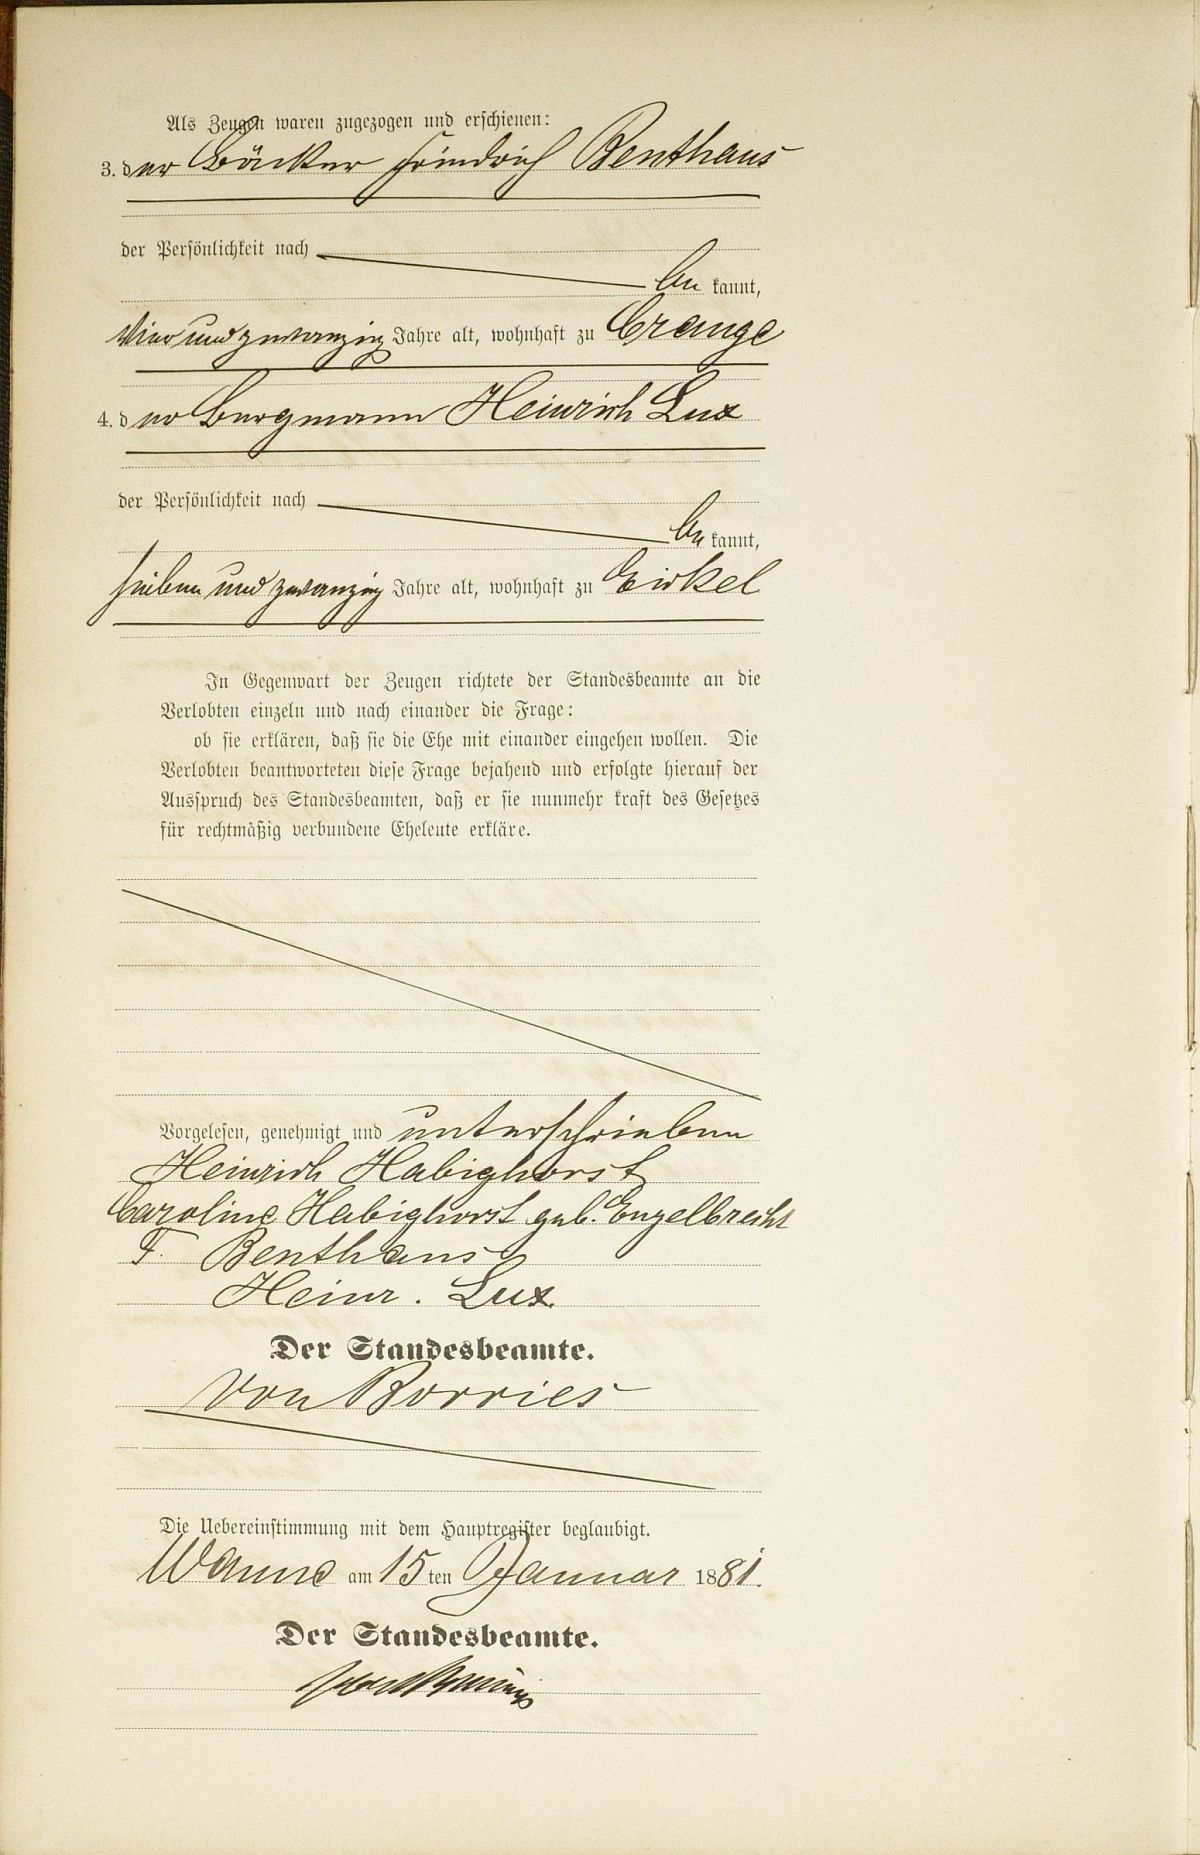 Als Zeugen waren zugezogen und erschienen:
3. der Bäcker Friedrich Benthaus
der Persönlichkeit nach
be kannt,
vier und zwanzig Jahre alt, wohnhaft zu Crange
4. der Bergmann Heinrich Lux
der Persönlichkeit nach
be kannt,
sieben und zwanzig Jahre alt, wohnhaft zu Eickel
In Gegenwart der Zeugen richtete der Standesbeamte an die
Verlobten einzeln und nach einander die Frage:
ob sie erklären, daß sie die Ehe mit einander eingehen wollen. Die
Verlobten beantworteten diese Frage bejahend und erfolgte hierauf der
Ausspruch des Standesbeamten, daß er sie nunmehr kraft des Gesetzes
für rechtmäßig verbundene Eheleute erkläre.
Vorgelesen, genehmigt und unterschrieben
Heinrich Habighorst
Caroline Habighorst geb. Engelbrecht
F. Benthaus
Heinr. Lux.
Der Standesbeamte.
von Borries
Die Uebereinstimmung mit dem Hauptregister beglaubigt.
Wanne am 15 ten Januar 1881.
Der Standesbeamte.